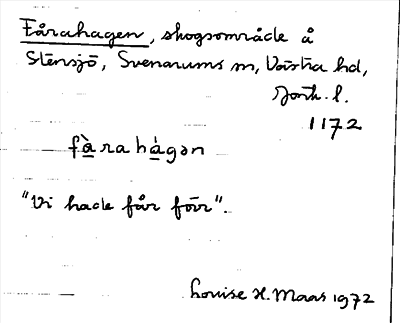 Fårahagen, skogsområde å
Stensjö, Svenarums sn, Västra hd,
Jönk. l.
1172
fàrahágən
"Vi hade får förr".
Louise H. Maas 1972